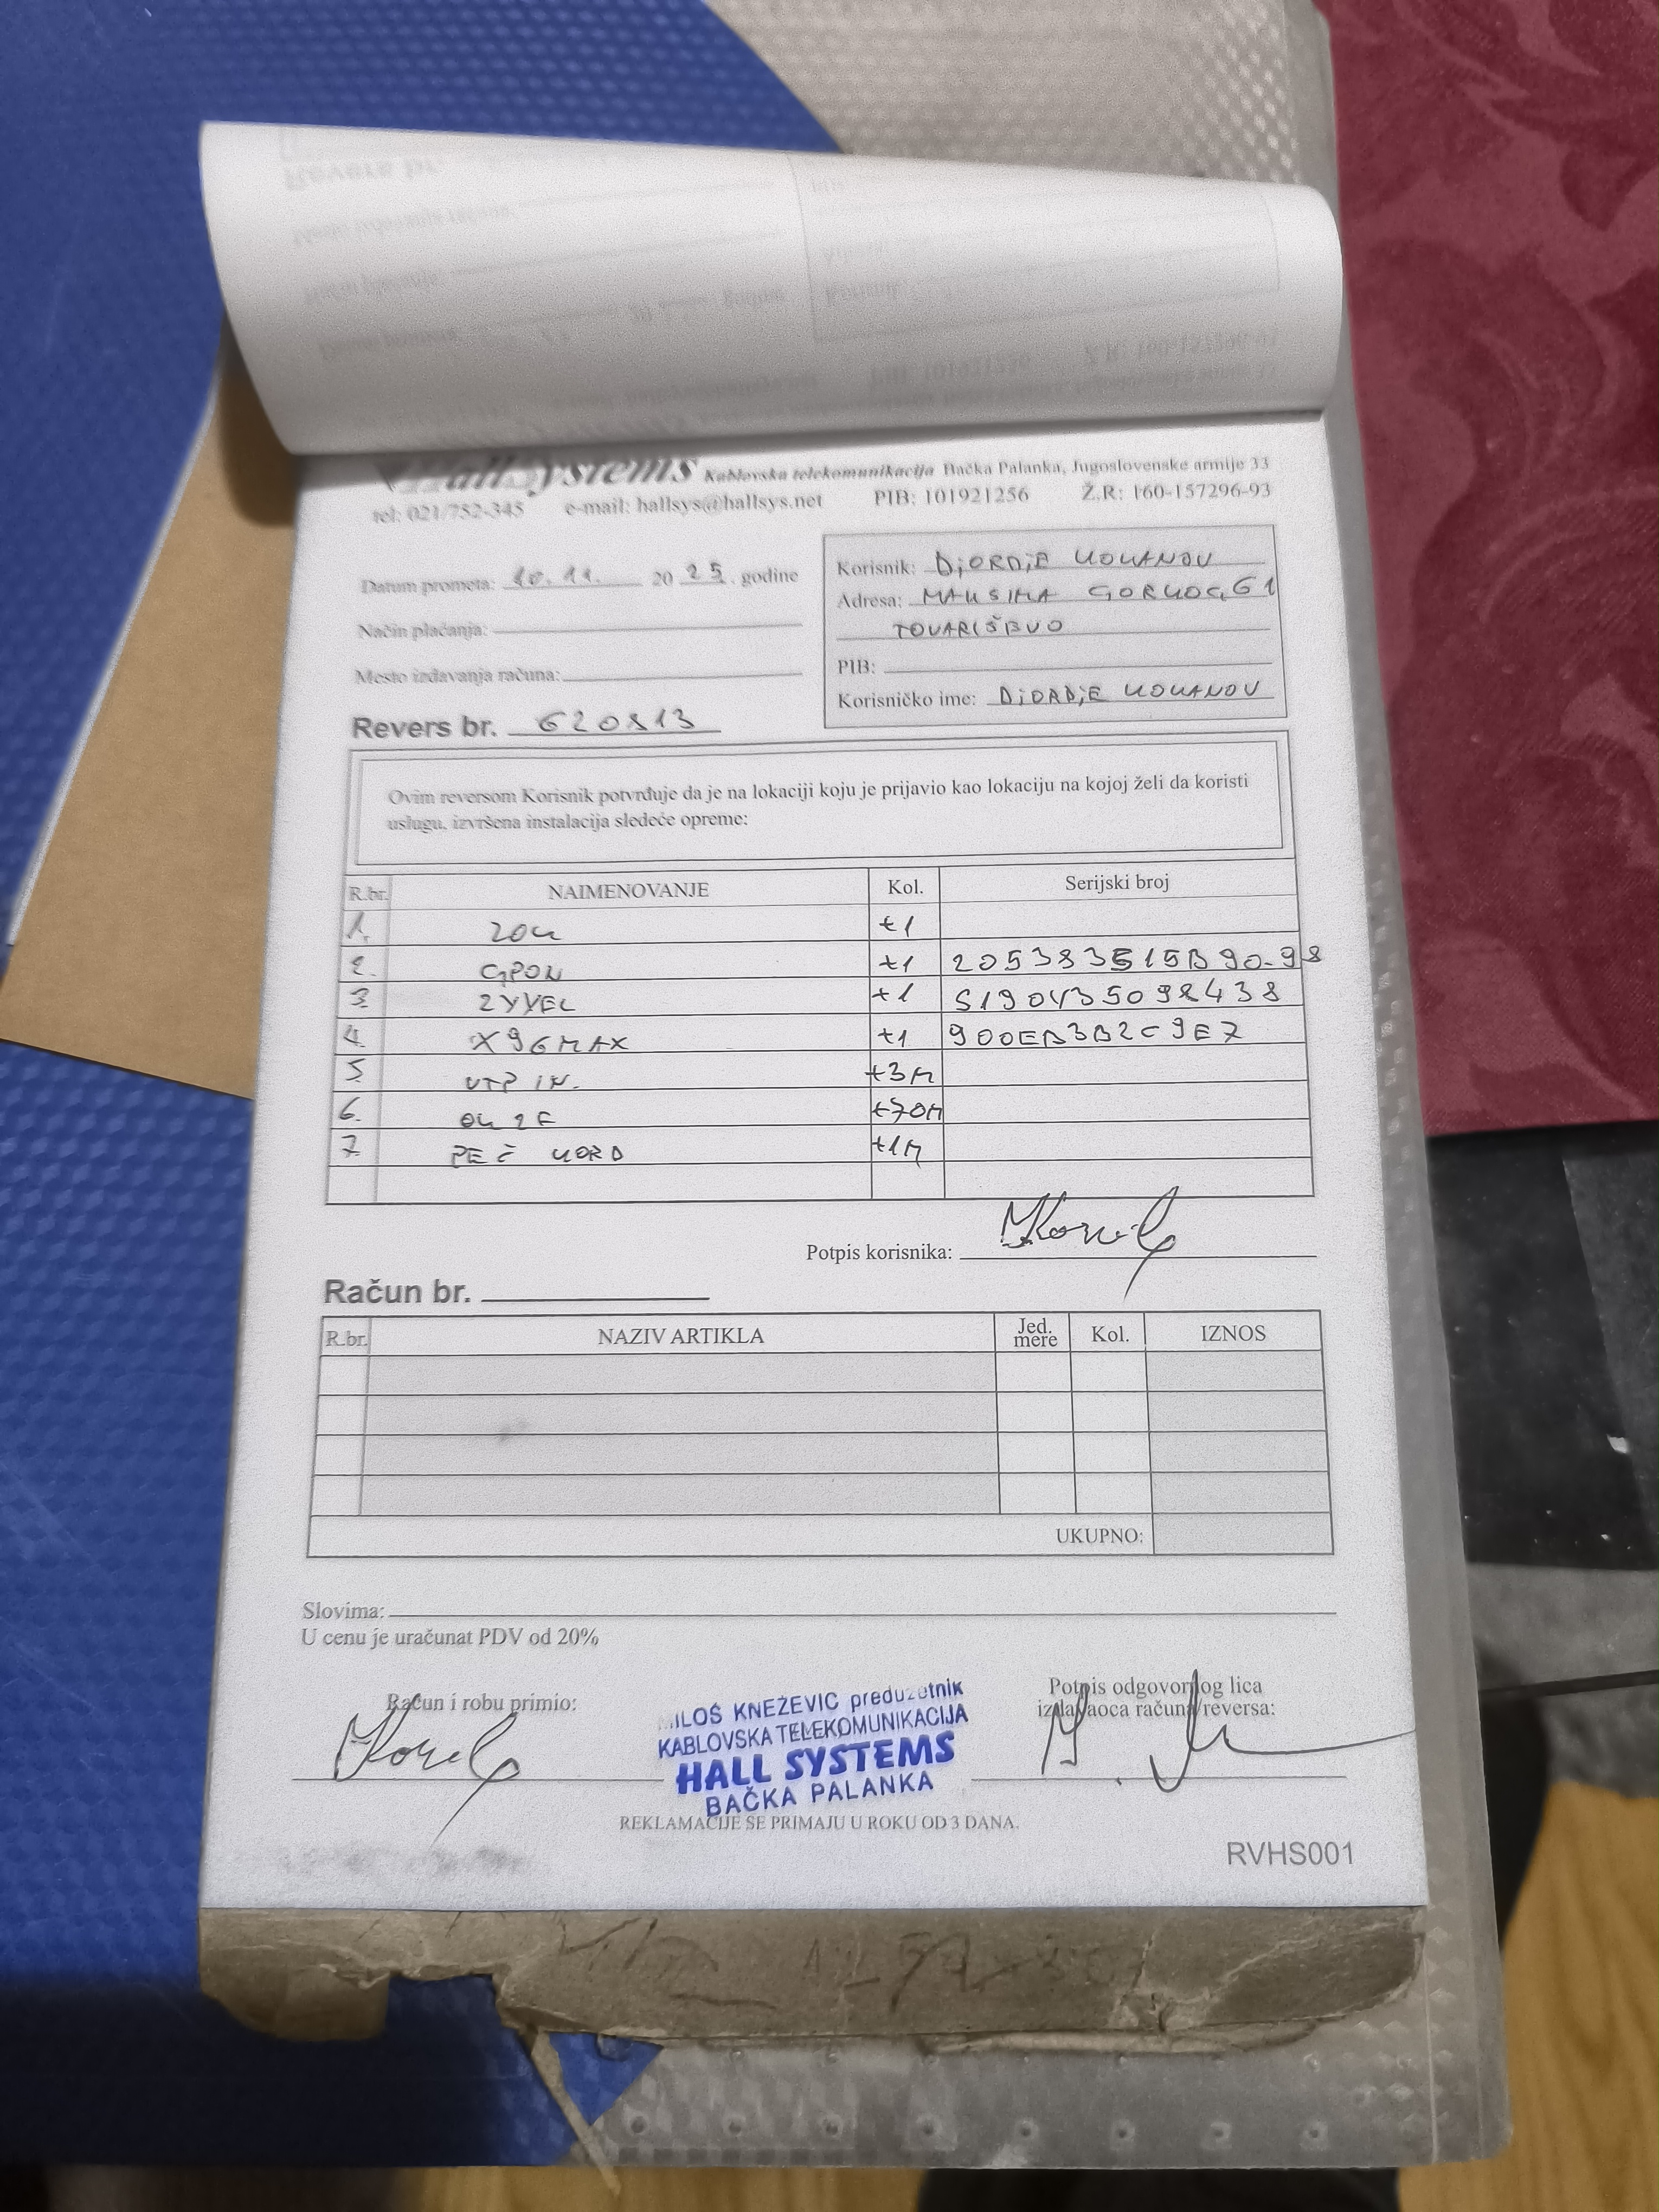 HallSystems Kablovska telekomunikacija Bačka Palanka, Jugoslovenske armije 33
tel: 021/752-345 e-mail: hallsys@hallsys.net PIB: 101921256 Ž.R: 160-157296-93
Datum prometa: 10.11. 20 25. godine
Način plaćanja:
Mesto izdavanja računa:
Revers br. 620813
Korisnik: DjORDjE KOKANOV
Adresa: MAKSIMA GORKOG, 61
TOVARIŠEVO
PIB:
Korisničko ime: DjORDjE KOKANOV
Ovim reversom Korisnik potvrđuje da je na lokaciji koju je prijavio kao lokaciju na kojoj želi da koristi
uslugu, izvršena instalacija sledeće opreme:
R.br. NAIMENOVANJE Kol. Serijski broj
1. ZOK +1
2. GPON +1 205383515B90-98
3. ZYXEL +1 S190Y35098438
4. X96MAX +1 900EB3B2C9E7
5. UTP IN. +3M
6. OK 2F +70M
7. PEČ KORD +1M
Potpis korisnika:
Račun br.
R.br. NAZIV ARTIKLA Jed. mere Kol. IZNOS
UKUPNO:
Slovima:
U cenu je uračunat PDV od 20%
Račun i robu primio:
MILOŠ KNEŽEVIĆ preduzetnik
KABLOVSKA TELEKOMUNIKACIJA
HALL SYSTEMS
BAČKA PALANKA
Potpis odgovornog lica
izdavaoca računa/reversa:
REKLAMACIJE SE PRIMAJU U ROKU OD 3 DANA.
RVHS001